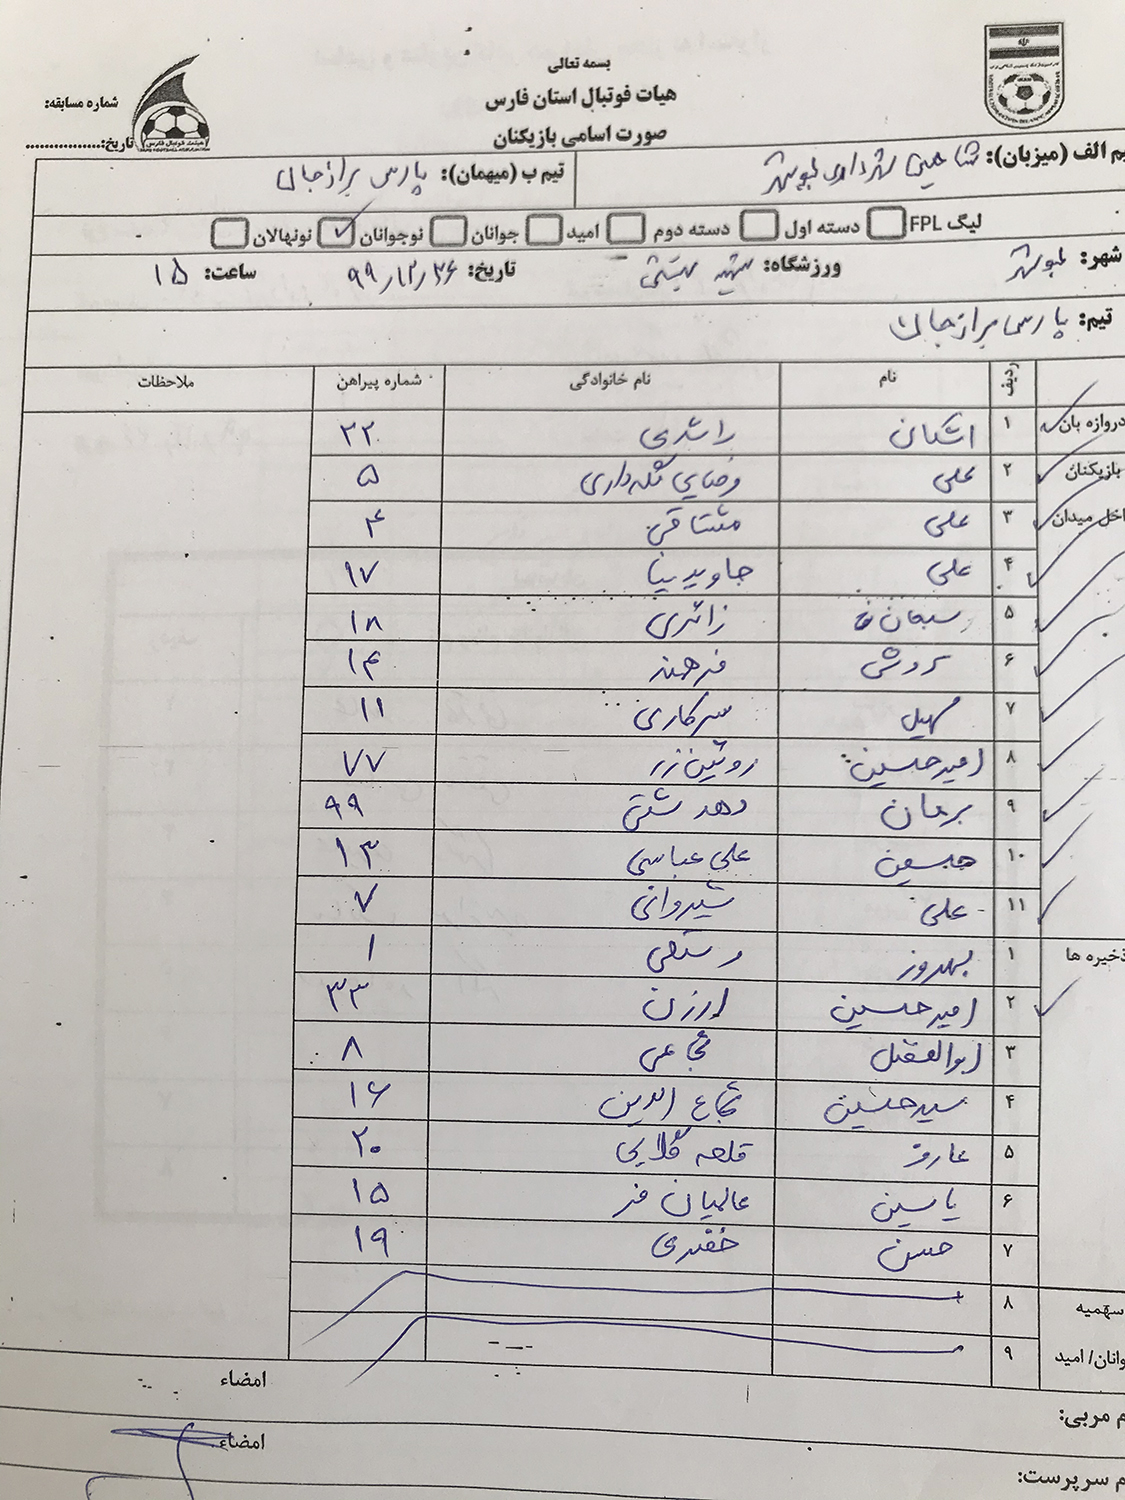 بسمه تعالی
هیات فوتبال استان فارس
صورت اسامی بازیکنان
شماره مسابقه:
تاریخ:.................
یم الف (میزبان): شاهین شهرداری بوشهر تیم ب (میهمان): پارس برازجان
لیگ FPL دسته اول دسته دوم امید جوانان نوجوانان نونهالان
شهر: بوشهر ورزشگاه: شهید بهشتی تاریخ: ۹۹/۱۲/۲۶ ساعت: ۱۵
تیم: پارس برازجان
ردیف نام نام خانوادگی شماره پیراهن ملاحظات
دروازه بان ۱ اشکان راشدی ۲۲
بازیکنان ۲ علی رضایی گله داری ۵
اخل میدان ۳ علی مشتاقی ۴
۴ علی جاویدنیا ۹۷
۵ سبحان زائری ۱۸
۶ فرهمند ۱۴
۷ سهیل سرکاری ۱۱
۸ امیرحسین روئین‌زر ۷۷
۹ برهان دهدشتی ۹۹
۱۰ حسین علی عباسی ۱۳
۱۱ علی شیروانی ۷
ذخیره ها ۱ بهروز رستمی ۱
۲ امیرحسین ارزن ۳۳
۳ ابوالفضل شجاعی ۸
۴ سیدحسین شجاع الدین ۱۶
۵ عارف قلعه گلابی ۲۰
۶ یاسین عالمیان فر ۱۵
۷ حسن ۱۹
سهمیه ۸
وانان/ امید ۹
امضاء
م مربی:
امضاء
م سرپرست: